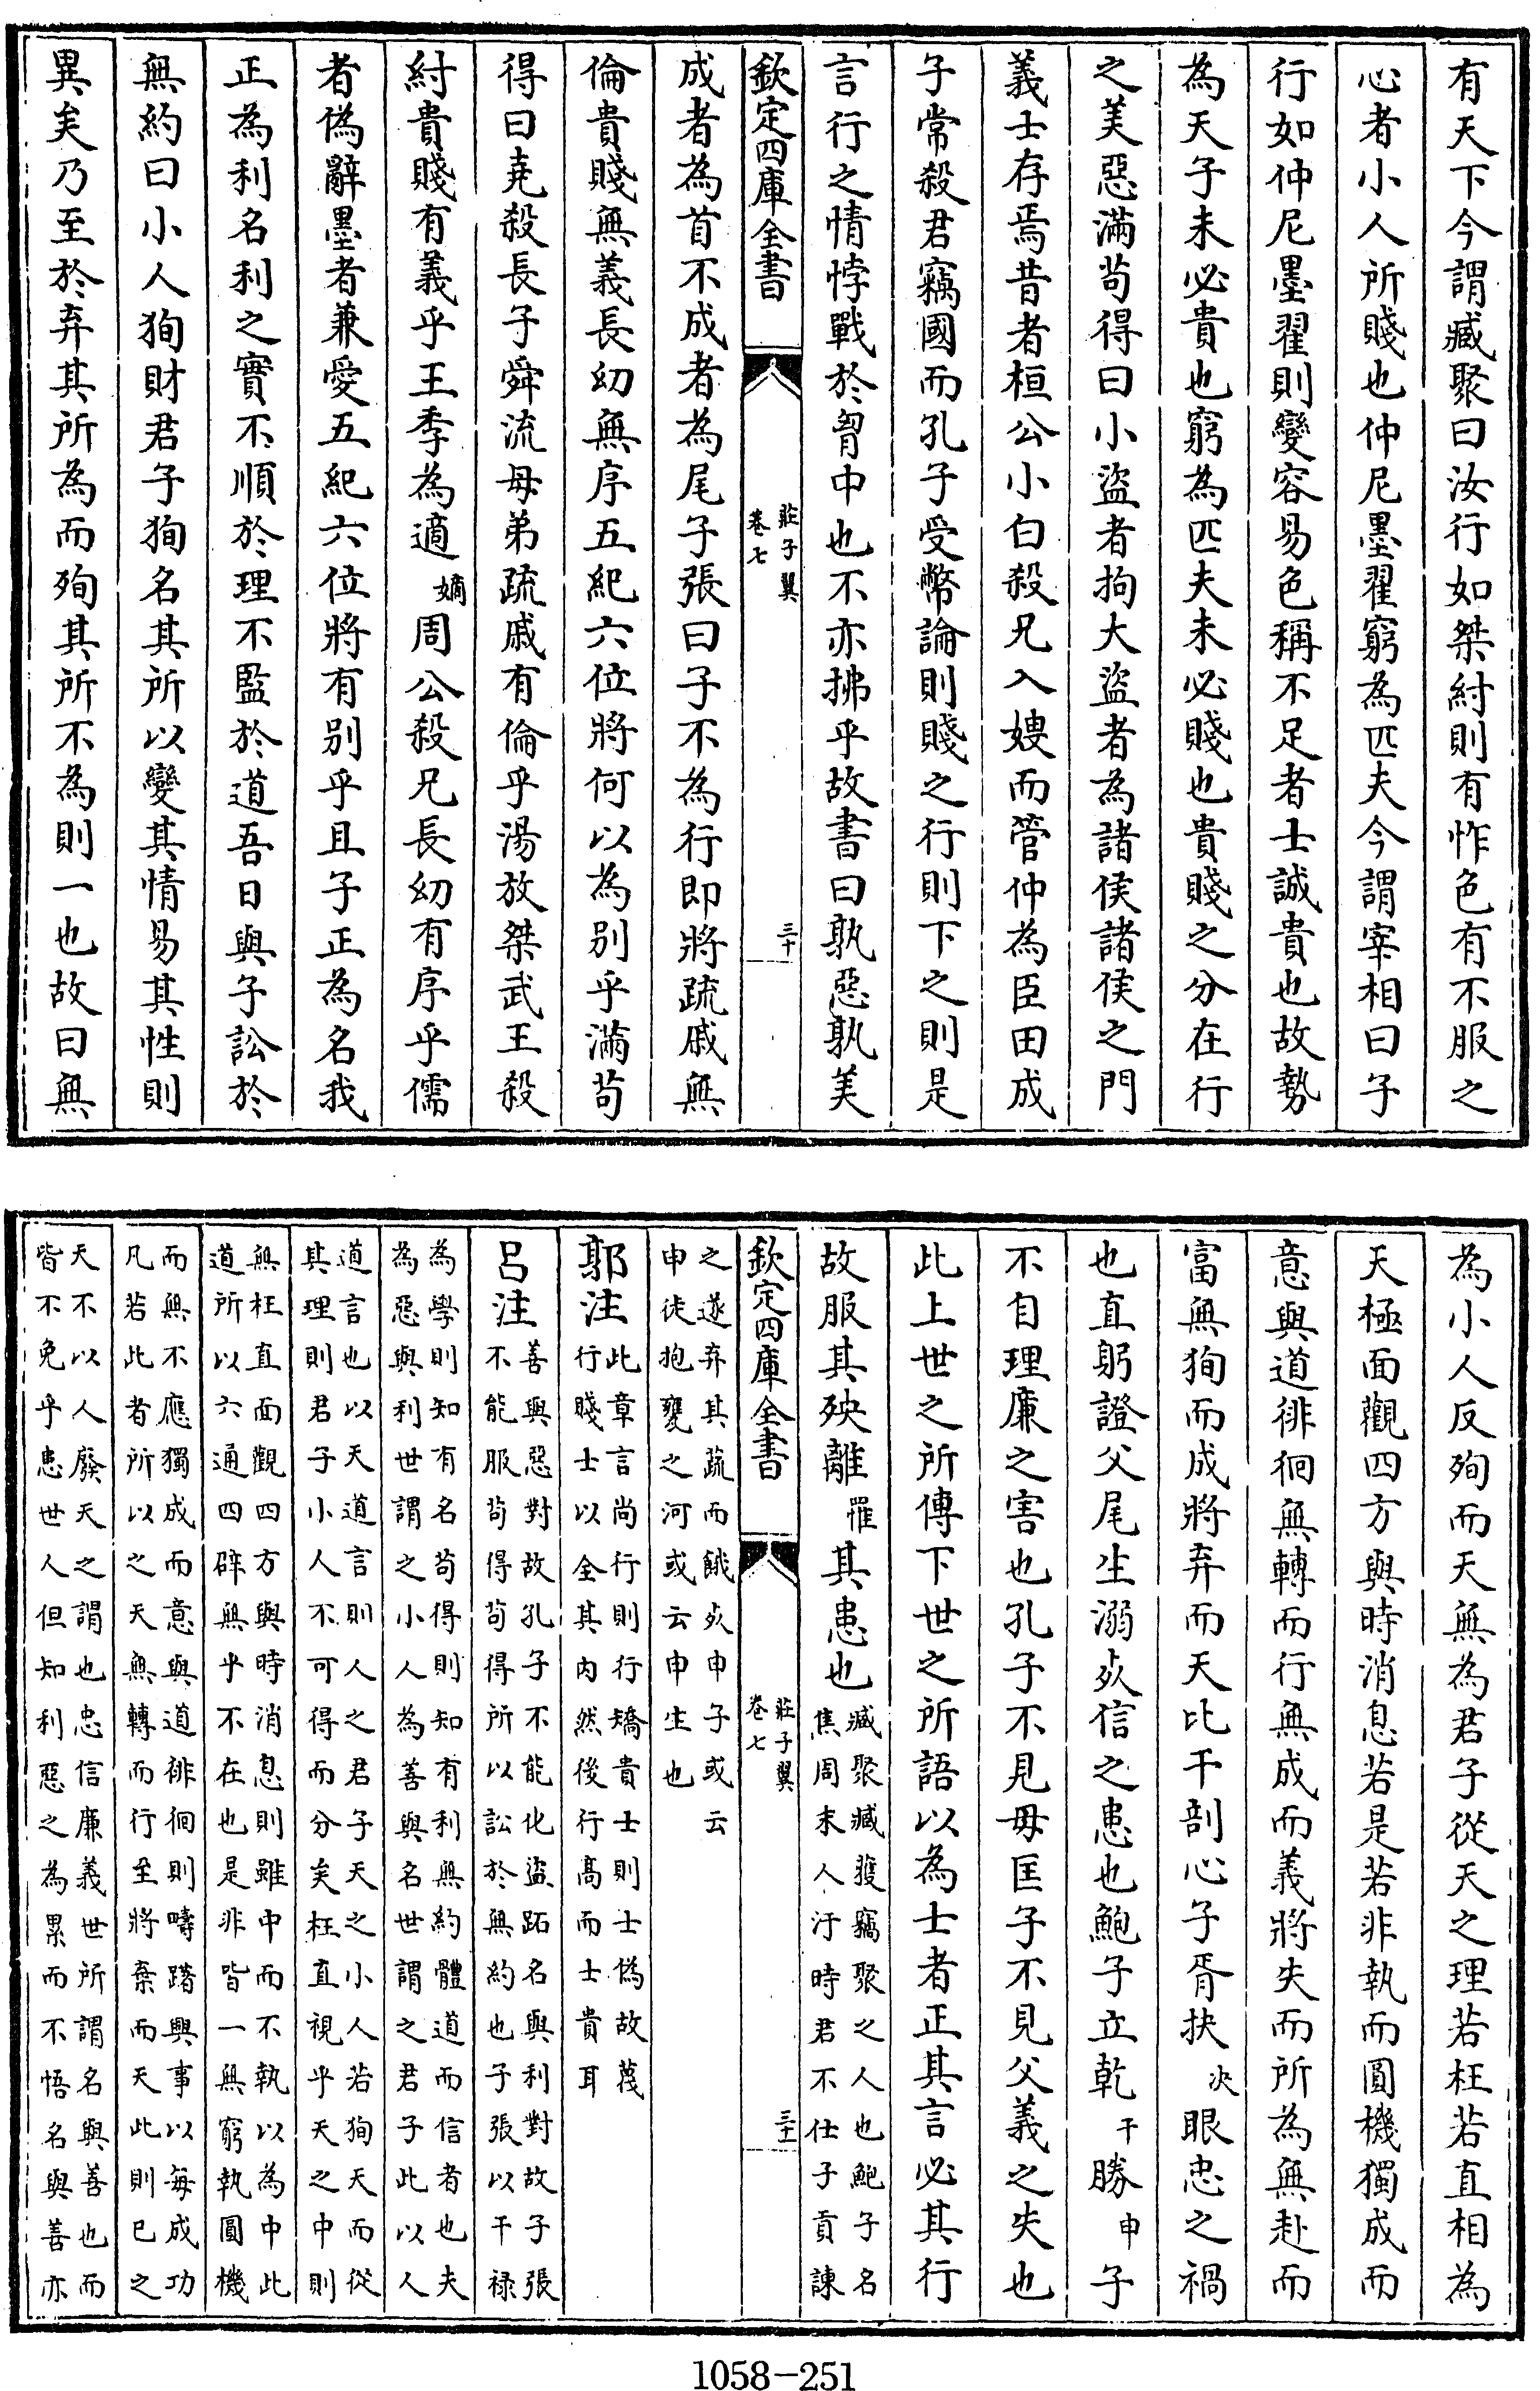 有天下今謂臧聚曰汝行如桀紂則有怍色有不服之
心者小人所賤也仲尼墨翟窮為匹夫今謂宰相曰子
行如仲尼墨翟則變容易色稱不足者士誠貴也故勢
為天子未必貴也窮為匹夫未必賤也貴賤之分在行
之美惡滿苟得曰小盜者拘大盜者為諸侯諸侯之門
義士存焉昔者桓公小白殺兄入嫂而管仲為臣田成
子常殺君竊國而孔子受幣論則賤之行則下之則是
言行之情悖戰於胷中也不亦拂乎故書曰孰惡孰美
欽定四庫全書 莊子翼 卷七 三十
成者為首不成者為尾子張曰子不為行即將疏戚無
倫貴賤無義長幼無序五紀六位將何以為別乎滿苟
得曰堯殺長子舜流母弟疏戚有倫乎湯放桀武王殺
紂貴賤有義乎王季為適嫡周公殺兄長幼有序乎儒
者偽辭墨者兼愛五紀六位將有别乎且子正為名我
正為利名利之實不順於理不監於道吾日與子訟於
無約曰小人狥財君子狥名其所以變其情易其性則
異矣乃至於弃其所為而殉其所不為則一也故曰無
為小人反殉而天無為君子從天之理若枉若直相為
天極面觀四方與時消息若是若非執而圓機獨成而
意與道徘徊無轉而行無成而義將失而所為無赴而
富無狥而成將弃而天比干剖心子胥抉決眼忠之禍
也直躬證父尾生溺死信之患也鮑子立乾干勝申子
不自理廉之害也孔子不見母匡子不見父義之失也
此上世之所傳下世之所語以為士者正其言必其行
故服其殃離罹其患也臧聚臧獲竊聚之人也鮑子名
焦周末人汙時君不仕子貢諫
欽定四庫全書 莊子翼 卷七 三十一
之遂弃其蔬而餓死申子或云
申徒抱甕之河或云申生也
郭注此章言尚行則行矯貴士則士偽故蔑
行賤士以全其內然後行高而士貴耳
呂注善與惡對故孔子不能化盜跖名與利對故子張
不能服苟得苟得所以訟於無約也子張以干祿
為學則知有名苟得則知有利無約體道而信者也夫
為惡與利世謂之小人為善與名世謂之君子此以人
道言也以天道言則人之君子天之小人若狥天而從
其理則君子小人不可得而分矣枉直視乎天之中則
無枉直面觀四方與時消息則雖中而不執以為中此
道所以六通四辟無乎不在也是非皆一無窮執圓機
而無不應獨成而意與道徘徊則疇躇興事以每成功
凡若此者所以之天無轉而行至將棄而天此則已之
天不以人廢天之謂也忠信廉義世所謂名與善也而
皆不免乎患世人但知利惡之為累而不悟名與善亦
1058-251